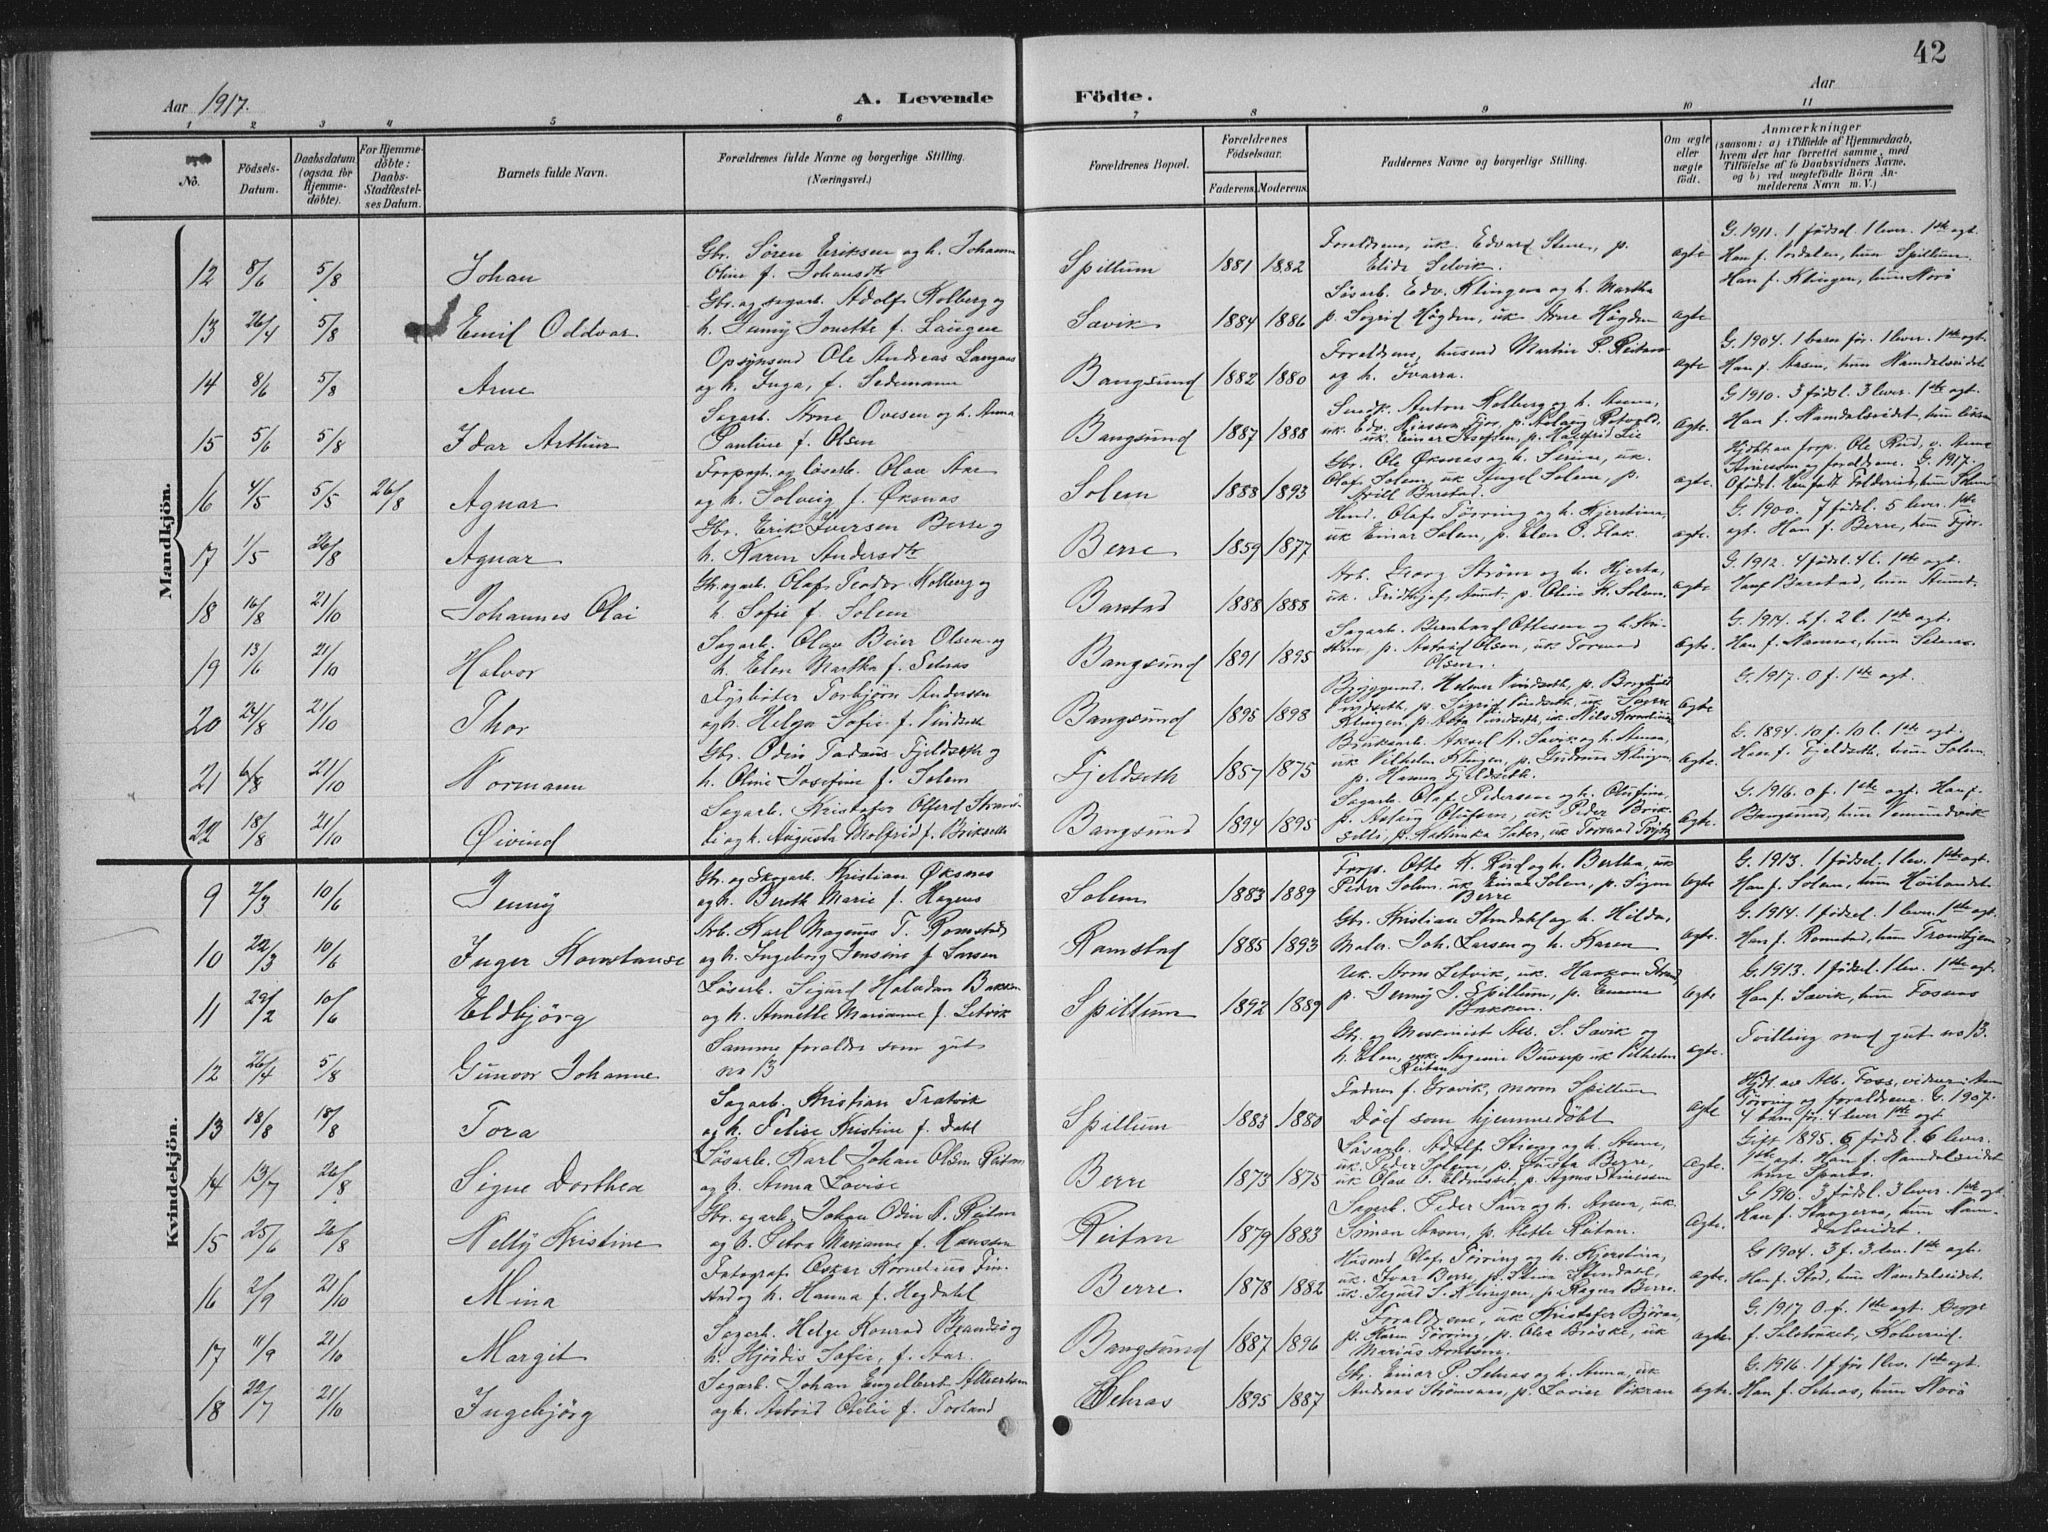 42
Aar 1917.
A. Levende Födte.
Aar
1 2 3 4 5 6 7 8 9 10 11
No.
Födsels-Datum.
Daabsdatum (ogsaa for Hjemmedöbte).
For Hjemmedöbte: Daabs-Stadfæstelses Datum.
Barnets fulde Navn.
Forældrenes fulde Navne og borgerlige Stilling.
(Næringsvei.)
Forældrenes Bopæl.
Forældrenes Födselsaar.
Faderens. Moderens.
Faddernes Navne og borgerlige Stilling.
Om ægte eller uægte födt.
Anmærkninger
(saasom: a) i Tilfælde af Hjemmedaab, hvem der har forrettet samme, med Tilföielse af to Daabsvidners Navne. og b) ved uægtefödte Börn Anmelderens Navn m. V.)
Mandkjön.
12 8/6 5/8 Johan
Gbr. Sören Eriksen og h. Johanna
Oline f. Johansdtr
Spillum 1881 1882
Foraldrene, uk. Edvard Stene, p.
Elide Selvik.
agte
G. 1911. 1 födsel 1 lever. 1ste agt.
Han f. Vordalen, hun Spillum.
13 26/4 5/8 Emil Oddvar
Gbr. og sagarb. Adolf Kolberg og
h. Jenny Jonette f. Laugen
Savik 1884 1886
Lösarb. Edv. Klingen og h. Martha
p. Sigrid Högden, uk. Arne Högden
agte
Han f. Klingen, hun Norö
14 8/6 5/8 Arne
Opsynsmd Ole Andreas Langaas
og h. Inga, f. Sedemann
Bangsund 1882 1880
Foraldrene, husmd Martin P. Reitan
og h. Ivarra.
agte
G. 1904. 1 barn før. 1 lever. 1ste agt.
Han f. Aasen, hun Namdalseidet.
15 5/6 5/8 Idar Arthur
Sagarb. Arne Ovesen og h. Anna
Pauline f. Olsen
Bangsund 1887 1888
Smedk. Anton Kolberg og h. Anna,
agte.
G. 1910. 3 födsl. 3 lever. 1ste agt.
Han f. Namdalseidet, hun
16 4/5 5/5 26/8 Agnar
Forpagt. og lösarb. Olav Aae
og h. Solveig f. Øksnas
Solem 1888 1893
Gbr. Ole Øksnas og h. Serine, uk.
Olaf Solem, uk. Ingel Solem, p.
Barstad.
agte.
Hjdbt. av forp. Ole Rud, v. Anne
og foraldrene. G. 1917.
17 1/5 26/8 Agnar
Gbr. Erik Iversen Berre og
h. Karen Andersdtr
Berre 1859 1877
Hmd. Olaf Törring og h. Kjerstina,
uk Einar Solem, p. Elen O. Flak.
agte.
G. 1900. 7 födsl 5 lever 1ste
agt. Han f. Berre, hun Fjör.
18 16/8 21/10 Johannes Olai
Gbr. og arb. Olaf Teodor Kolberg og
h. Sofie f. Solem
Barstad 1888 1888
Arb. Georg Ström og h. Hjerta,
uk. Fridthjof Aunet, p. Oline K. Solem.
agte
G. 1912. 4 födsl 4 l. 1ste agt.
Han f Barstad, hun
19 13/6 21/10 Halvor
Sagarb. Olav Beier Olsen og
h. Elen Martha f. Selnas
Bangsund 1891 1895
Sagarb. Bernhard Ottesen og h. Kri-
stine, p. Astrid Olsen, uk Tormod
Olsen.
agte.
G. 1914. 2 f. 2 l. 1ste agt.
Han f. Namsos, hun Selnas.
20 24/8 21/10 Thor
Fyrböter Torbjörn Andersen
og h. Helga Sofie f. Vindseth
Bangsund 1895 1898
Byggmd. Helmer Vindseth, p. Borghild
Vindseth, p. Sigrid Vindseth, uk
Klingen, p. Asta Vindseth, uk. Nils
agte
G. 1917. 0 f. 1ste agt.
21 6/8 21/10 Normann
Gbr. Odin Tadaus Fjeldseth og
h. Oline Josefine f. Solem
Fjeldseth 1857 1875
Bruksarb. Aksel A. Savik og h. Anna,
uk Vilhelm Klingen, p. Gudrun Klingen,
p. Hanna Fjeldseth.
agte.
G. 1894. 10 f. 10 l. 1ste agt.
Han f. Fjeldseth, hun Solem
22 18/8 21/10 Öivind
Sagarb. Kristofer Oferd Strand-
li og h. Augusta Molfrid f. Brikselli
Bangsund 1894 1895
Sagarb. Olaf Pedersen og h. Olufine,
p. Aslaug Olufsen, uk Peder Brik-
selli, p.
agte.
G. 1916. 0 f. 1ste agt. Han f.
Bangsund, hun Vemundvik
Kvindekjön.
9 2/3 10/6 Jenny
Gbr. og Skogarb. Kristian Øksnas
og h. Bereth Marie f. Hagens
Solem 1883 1889
Forp. Otto K. Rud og h. Bertha, uk
Peder Solem, uk Einar Solem, p. Signe
Berre
agte
G. 1913. 1 födsel. 1 lev. 1ste agt.
Han f. Solem, hun Höilandet.
10 22/3 10/6 Inger Konstanse
Arb. Karl Magnus T. Romstad
og h. Ingeborg Jensine f. Larsen
Ramstad 1885 1893
Gbr. Kristian Stendahl og h. Hilda,
Maler. Joh. Larsen og h. Karen
agte.
G. 1914. 1 födsel. 1 lever. 1ste agt.
Han f. Romstad, hun Trondhjem
11 29/2 10/6 Eldbjörg
Lösarb. Sigurd Halvdan Bakken
og h. Annette Marianne f. Letvik
Spillum 1892 1889
Uk. Arne Letvik, uk. Haakon Strand,
p. Jenny J. Spillum, p. Emma
Bakken.
agte
G. 1913. 1 födsel. 1 lev. 1ste agt.
Han f. Savik, hun Fosnes
12 26/4 5/8 Gunvor Johanne
Samme foraldre som gut
no 13
Gbr. og Maskinist Alb. S. Savik og
h. Elen, uk. Magnie Buvarp uk Vilhelm
Reitan
agte.
Tvilling med gut no 13.
13 18/8 18/8 Tora
Sagarb. Kristian Fratvik
og h. Felise Kristine f. Dahl
Spillum 1883 1880
Faderen f. Gravik, moren Spillum
Död som hjemmedöbt
agte
Hjdt. av Alb. Foss, vidner:
Törring og foraldrene. G. 1907.
4 barn för. 4 lever 1ste agt
14 13/7 26/8 Signe Dorthea
Lösarb. Karl Johan Olsen Reitan
og h. Anna Lovise
Berre 1873 1875
Lösarb. Adolf Stieng og h. Anne,
uk. Peder Solem, p. Gusta Berre,
agte.
Gift 1895. 6 födsl. 6 lever.
1ste agt. Han f. Namdalseidet
hun Sparbu.
15 25/6 26/8 Nelly Kristine
Gbr. og arb. Johan Odin A. Reitan
og h. Petra Marianne f. Hansen
Reitan 1879 1883
Sagarb. Peder Saur og h. Anna, uk.
Simon Aasen, p. Mette Reitan.
agte.
G 1910. 3 födsl. 3 lever. 1ste agt.
Han f. Klungeras, hun Nam-
dalseidet.
16 2/9 21/10 Mina
Fotograf Oskar Kornelius Fin-
stad og h. Hanna f. Hegdahl
Berre 1878 1882
Husmd Olaf Törring og h. Kjerstina,
uk. Ivar Berre, p. Stina Stendahl,
uk. Sigurd S. Klingen, p. Ragna Berre.
agte.
G 1904. 3 f. 3 lev. 1ste agt.
Han f. Stod, hun Namdalseidet.
17 11/9 21/10 Margit
Sagarb. Helge Konrad Brandsö og
h. Hjördis Sofie, f. Aar.
Bangsund 1887 1896
Foraldrene, uk Kristofer Björaa,
p. Karen Törring, p. Olea Bröske, uk
Marius Arntsen.
agte.
G. 1917 0 f. 1ste agt. Begge
f. Kolvereid.
18 22/7 21/10 Ingebjörg
Sagarb. Johan Engelbert Albertsen
og h. Astrid Otelie f. Torland
Selnas 1895 1887
Gbr. Einar P. Selnas og h. Anna, uk
Andreas Strömsnas, p. Lovise Vikran
agte.
G. 1916. 1 f för 1 lev. 1ste agt.
Han f. Selnas, hun Norö